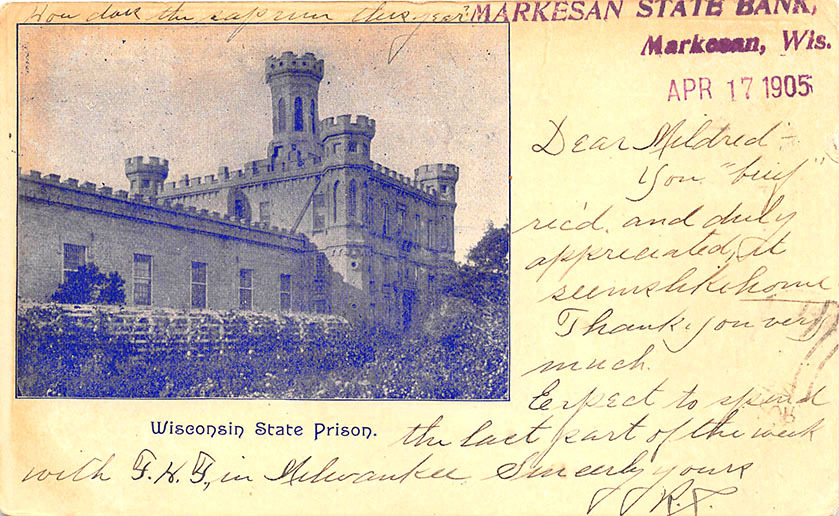 How does the supreme this year?
MARKESAN STATE BANK,
Markesan, Wis.
APR 17 1905
Dear Mildred -
You "brief"
rec'd. and duly
appreciated, it
seems like home
Thank you very
much.
Expect to spend
the last part of the week
with F. H. F., in Milwaukee. Sincerely yours
R.F.
Wisconsin State Prison.